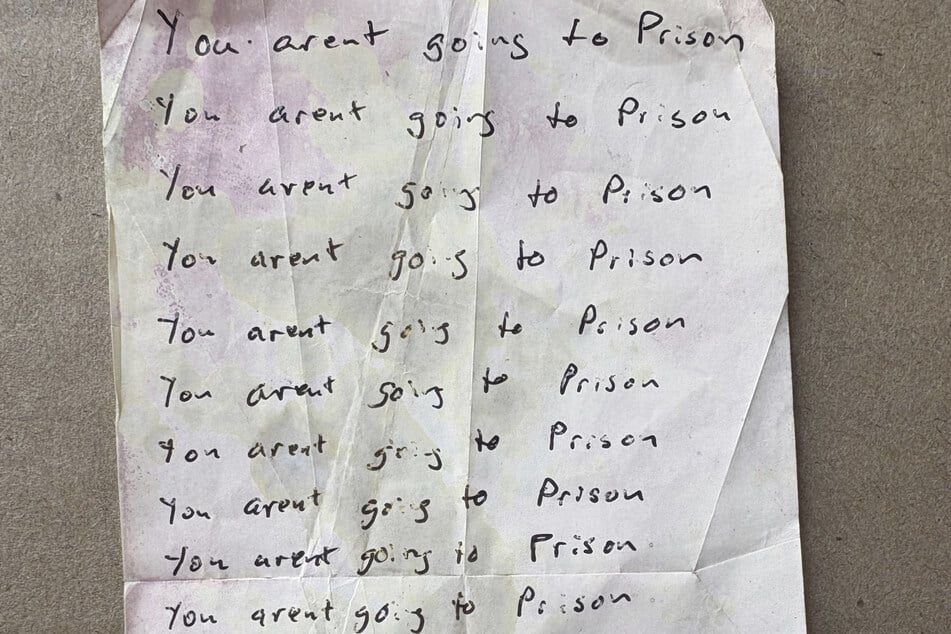 You arent going to Prison
You arent going to Prison
You arent going to Prison
You arent going to Prison
You arent going to Prison
You arent going to Prison
You arent going to Prison
You arent going to Prison
You arent going to Prison
You arent going to Prison